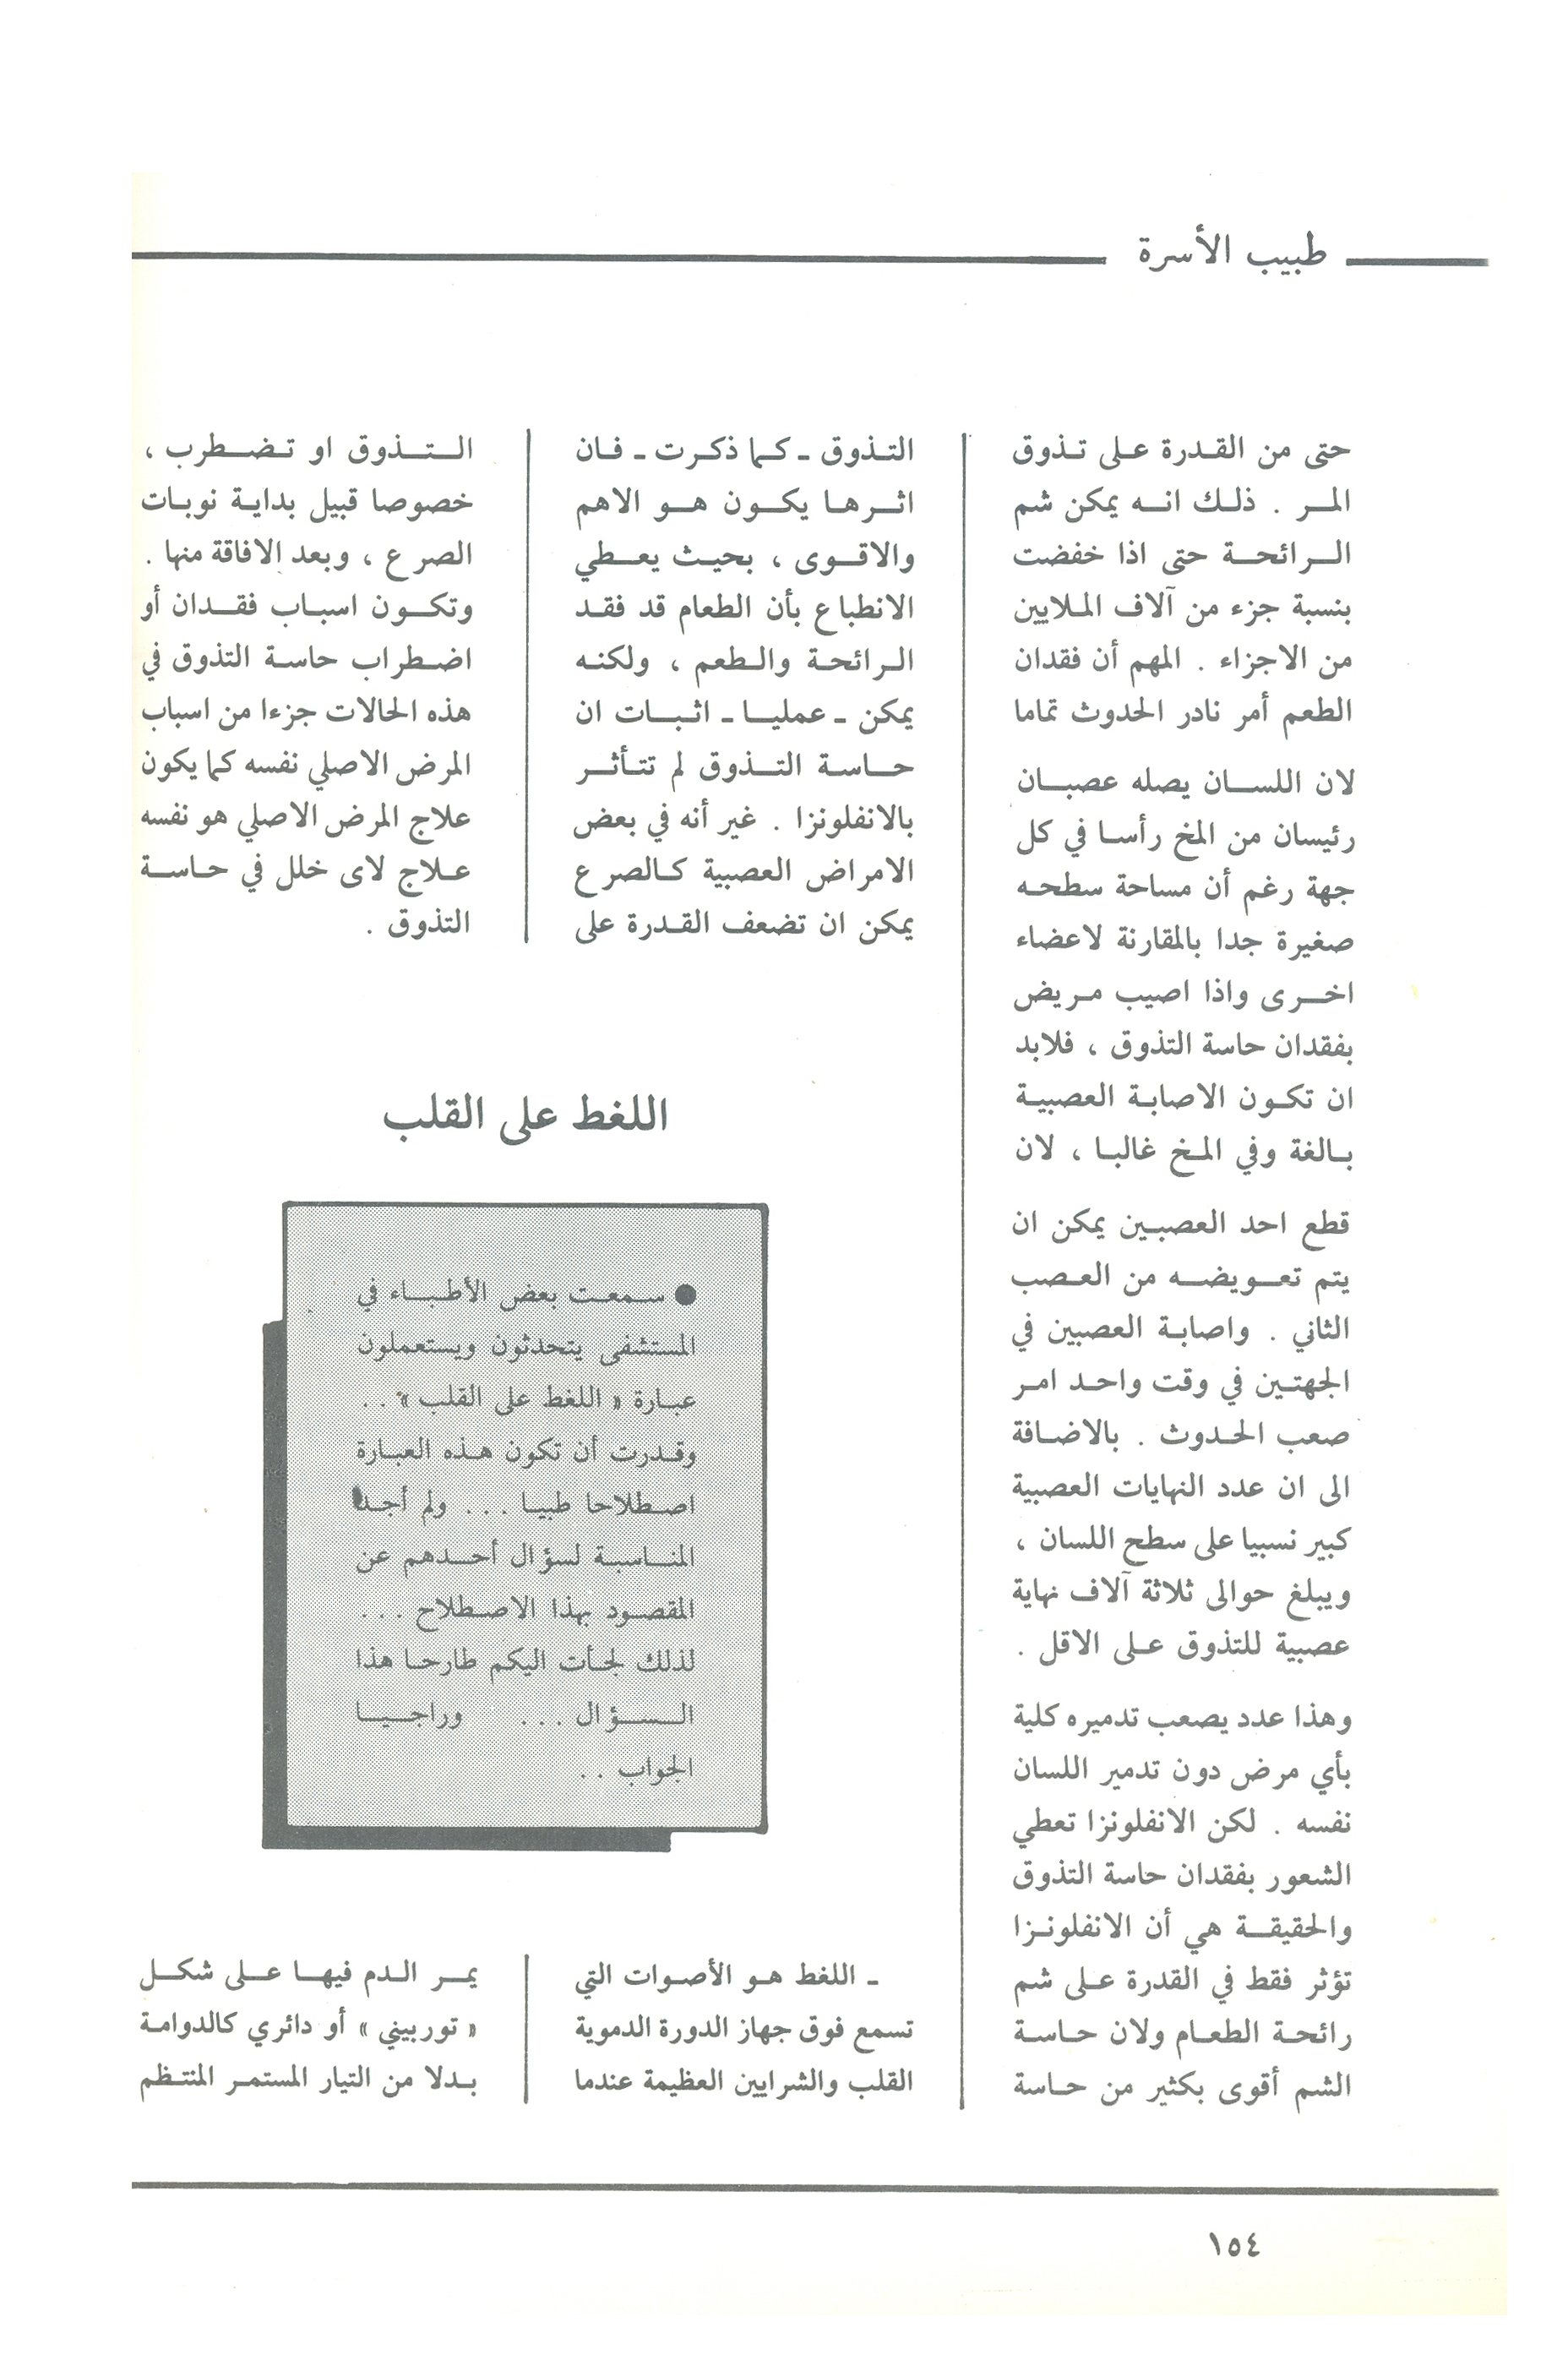 طبيب الأسرة
حتى من القدرة على تذوق
المر . ذلك انه يمكن شم
الرائحة حتى اذا خفضت
بنسبة جزء من آلاف الملايين
من الاجزاء . المهم أن فقدان
الطعم أمر نادر الحدوث تماما
لان اللسان يصله عصبان
رئيسان من المخ رأسا في كل
جهة رغم أن مساحة سطحه
صغيرة جدا بالمقارنة لاعضاء
اخرى واذا اصيب مريض
بفقدان حاسة التذوق ، فلابد
ان تكون الاصابة العصبية
بالغة وفي المخ غالبا ، لان
قطع احد العصبين يمكن ان
يتم تعويضه من العصب
الثاني . واصابة العصبين في
الجهتين في وقت واحد امر
صعب الحدوث . بالاضافة
الى ان عدد النهايات العصبية
كبير نسبيا على سطح اللسان ،
ويبلغ حوالى ثلاثة آلاف نهاية
عصبية للتذوق على الاقل .
وهذا عدد يصعب تدميره كلية
بأي مرض دون تدمير اللسان
نفسه . لكن الانفلونزا تعطي
الشعور بفقدان حاسة التذوق
والحقيقة هي أن الانفلونزا
تؤثر فقط في القدرة على شم
رائحة الطعام ولان حاسة
الشم أقوى بكثير من حاسة
التذوق ـ كما ذكرت ـ فان
اثرها يكون هو الاهم
والاقوى ، بحيث يعطي
الانطباع بأن الطعام قد فقد
الرائحة والطعم ، ولكنه
يمكن ـ عمليا ـ اثبات ان
حاسة التذوق لم تتأثر
بالانفلونزا . غير أنه في بعض
الامراض العصبية كالصرع
يمكن ان تضعف القدرة على
التذوق او تضطرب ،
خصوصا قبيل بداية نوبات
الصرع ، وبعد الافاقة منها .
وتكون اسباب فقدان أو
اضطراب حاسة التذوق في
هذه الحالات جزءا من اسباب
المرض الاصلي نفسه كما يكون
علاج المرض الاصلي هو نفسه
علاج لاى خلل في حاسة
التذوق .
اللغط على القلب
● سمعت بعض الأطباء في
المستشفى يتحدثون ويستعملون
عبارة « اللغط على القلب » . .
وقدرت أن تكون هذه العبارة
اصطلاحا طبيا . . . ولم أجد
المناسبة لسؤال أحدهم عن
المقصود بهذا الاصطلاح . . .
لذلك لجأت اليكم طارحا هذا
السؤال . . . وراجيا
الجواب . .
ـ اللغط هو الأصوات التي
تسمع فوق جهاز الدورة الدموية
القلب والشرايين العظيمة عندما
يمر الدم فيها على شكل
« توربيني » أو دائري كالدوامة
بدلا من التيار المستمر المنتظم
١٥٤